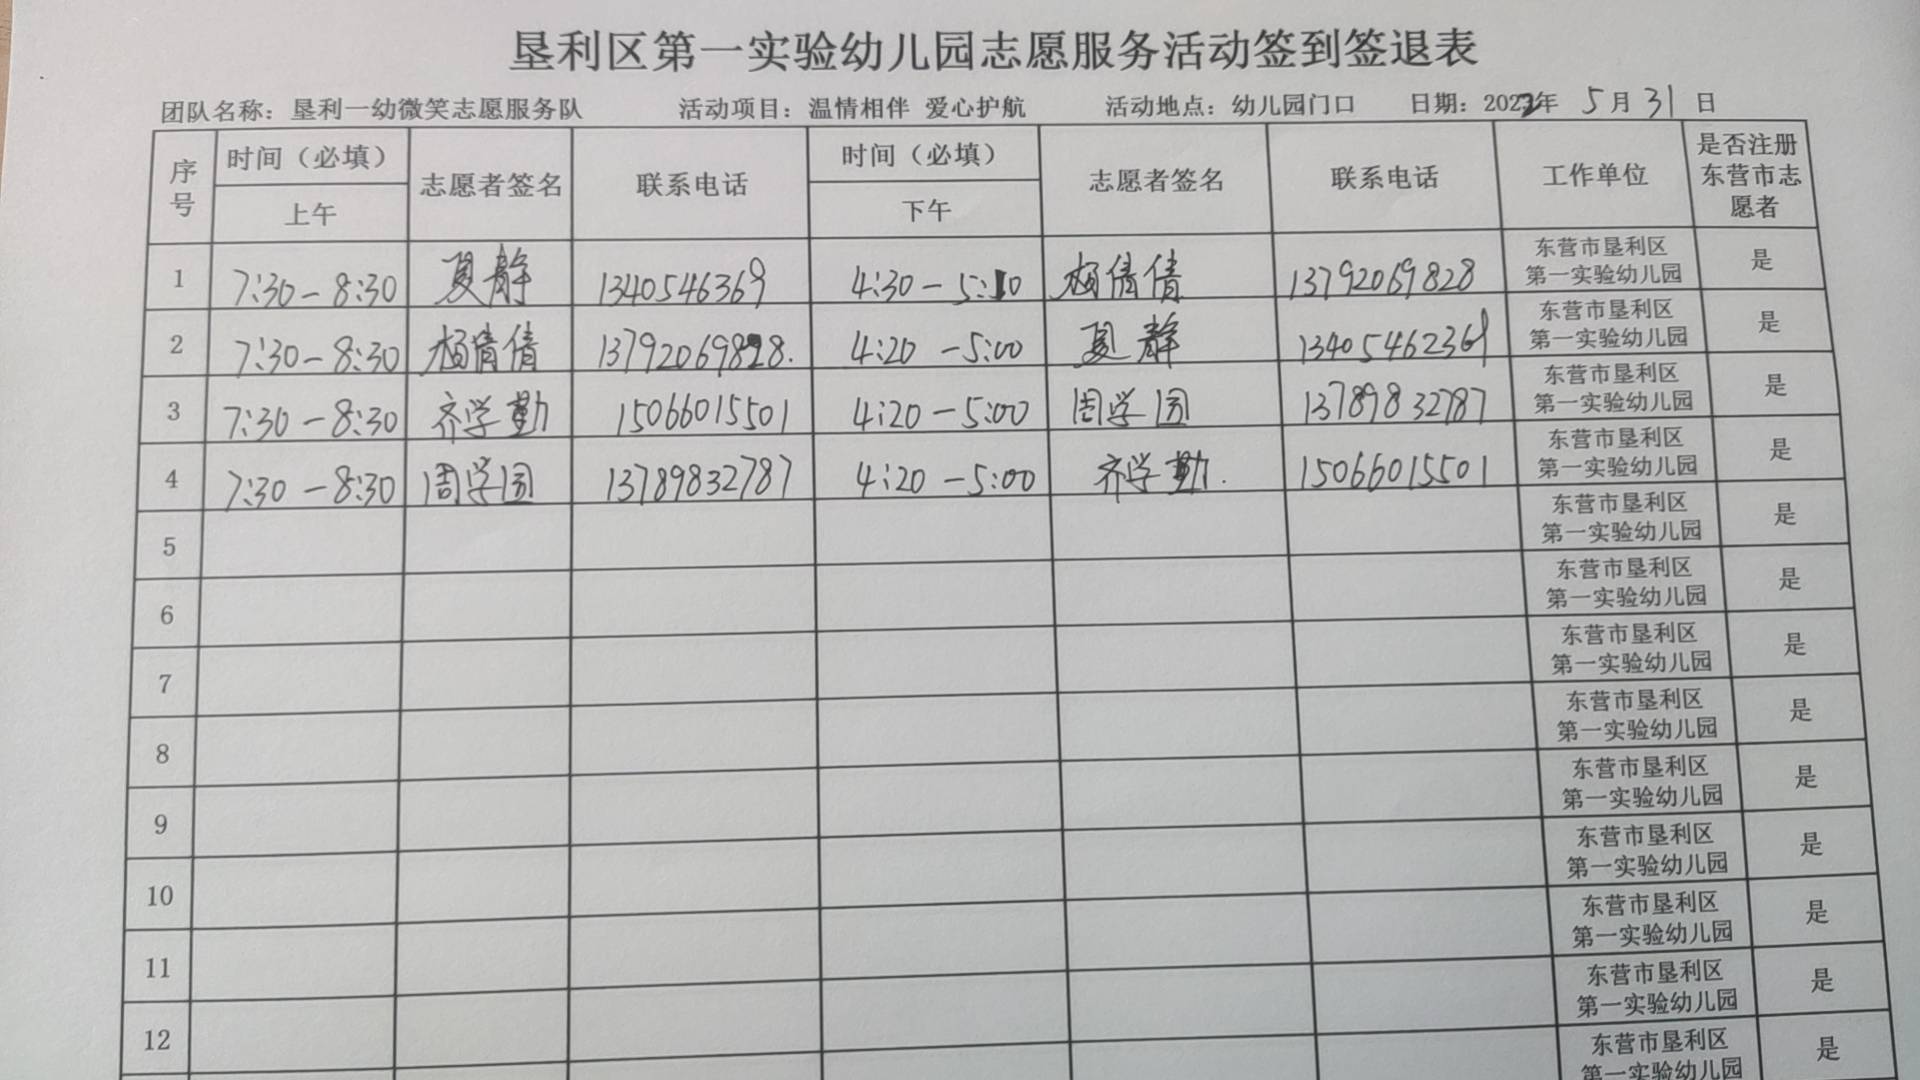 垦利区第一实验幼儿园志愿服务活动签到签退表
团队名称：垦利一幼微笑志愿服务队 活动项目：温情相伴 爱心护航 活动地点：幼儿园门口 日期：2022年 5月 31 日
序号 时间（必填） 上午 志愿者签名 联系电话 时间（必填） 下午 志愿者签名 联系电话 工作单位 是否注册东营市志愿者
1 7:30-8:30 夏静 1340546369 4:30-5:10 杨倩倩 13792069828 东营市垦利区第一实验幼儿园 是
2 7:30-8:30 杨倩倩 13792069828. 4:20-5:00 夏静 13405462369 东营市垦利区第一实验幼儿园 是
3 7:30-8:30 齐学勤 15066015501 4:20-5:00 周学园 13789832787 东营市垦利区第一实验幼儿园 是
4 7:30-8:30 周学园 13789832787 4:20-5:00 齐学勤. 15066015501 东营市垦利区第一实验幼儿园 是
5 东营市垦利区第一实验幼儿园 是
6 东营市垦利区第一实验幼儿园 是
7 东营市垦利区第一实验幼儿园 是
8 东营市垦利区第一实验幼儿园 是
9 东营市垦利区第一实验幼儿园 是
10 东营市垦利区第一实验幼儿园 是
11 东营市垦利区第一实验幼儿园 是
12 东营市垦利区第一实验幼儿园 是
东营市垦利区第一实验幼儿园 是